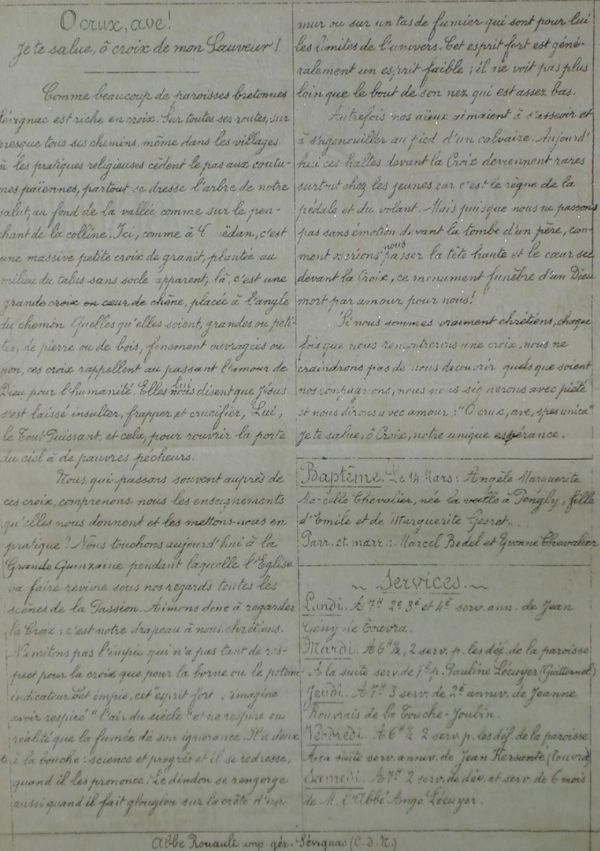 O crux, ave!
Je te salue, ô croix de mon Sauveur!
Comme beaucoup de paroisses bretonnes
Sévignac est riche en croix. Sur toutes ses routes, sur
presque tous ses chemins, même dans les villages
où les pratiques religieuses cèdent le pas aux coutu-
mes païennes, partout se dresse l'arbre de notre
salut, au fond de la vallée comme sur le pen-
chant de la colline. Ici, comme à édan, c'est
une massive petite croix de granit, plantée au
milieu du talus sans socle apparent; là, c'est une
grande croix en cœur de chêne, placée à l'angle
du chemin. Quelles qu'elles soient, grandes ou peti-
tes, de pierre ou de bois, finement ouvragées ou
non, ces croix rappellent au passant l'amour de
Dieu pour l'humanité. Elles lui disent que Jésus
s'est laissé insulter, frapper et crucifier, Lui,
le Tout Puissant, et cela, pour rouvrir la porte
du ciel à de pauvres pécheurs.
Nous qui passons souvent auprès de
ces croix, comprenons-nous les enseignements
qu'elles nous donnent et les mettons-nous en
pratique? Nous touchons aujourd'hui à la
Grande Quinzaine pendant laquelle l'Eglise
va faire revivre sous nos regards toutes les
scènes de la Passion. Aimons donc à regarder
la Croix: c'est notre drapeau à nous chrétiens.
N'imitons pas l'impie qui n'a pas tant de res-
pect pour la croix que pour la borne ou le poteau
indicateur. Cet impie, cet "esprit fort" s'imagine
avoir respiré "l'air du siècle" et ne respire en
réalité que la fumée de son ignorance. Il a deux
à la bouche: science et progrès et il se redresse,
quand il les prononce. Le dindon se rengorge
aussi quand il fait glouglou sur la crête d'un
mur ou sur un tas de fumier qui sont pour lui
les limites de l'univers. Cet esprit fort est géné-
ralement un esprit faible; il ne voit pas plus
loin que le bout de son nez qui est assez bas.
Autrefois nos aïeux aimaient à s'asseoir et
à s'agenouiller au pied d'un calvaire. Aujourd'
hui ces haltes devant la Croix deviennent rares
surtout chez les jeunes car c'est le règne de la
pédale et du volant. Mais puisque nous ne passons
pas sans émotion devant la tombe d'un père, com-
ment oserions nous passer la tête haute et le cœur sec
devant la Croix, ce monument funèbre d'un Dieu
mort par amour pour nous!
Si nous sommes vraiment chrétiens, chaque
fois que nous rencontrerons une croix, nous ne
craindrons pas de nous découvrir quels que soient
nos compagnons, nous nous signerons avec piété
et nous dirons avec amour: "O crux, ave, spes unica"
Je te salue, ô Croix, notre unique espérance.
Baptême. Le 14 Mars: Angèle Marguerite
Chevalier, née la veille à Pengly, fille
d'Emile et de Marguerite Gesret.
Parr. et marr.: Marcel Bedel et Yvonne Chevalier
Services.
Lundi. A 7h 2e 3e et 4e serv. ann. de Jean
de Touvra.
Mardi. A 6h ½, 2 serv. p. les déf. de la paroisse
A la suite serv de Pauline Lécuyer (Guitternel)
Jeudi. A 7h 3 serv. de 2e anniv. de Jeanne
Rouvrais de la Touche-Joulin.
Vendredi. A 6h ½ 2 serv. p. les déf. de la paroisse
A la suite serv. anniv. de Jean Kersanté, Touvra
Samedi. A 7h 2 serv. de dév. et serv. de 6 mois
de M. l'Abbé Ange Lécuyer.
Abbé Rouault imp. gér. Sévignac (C.d.N.)